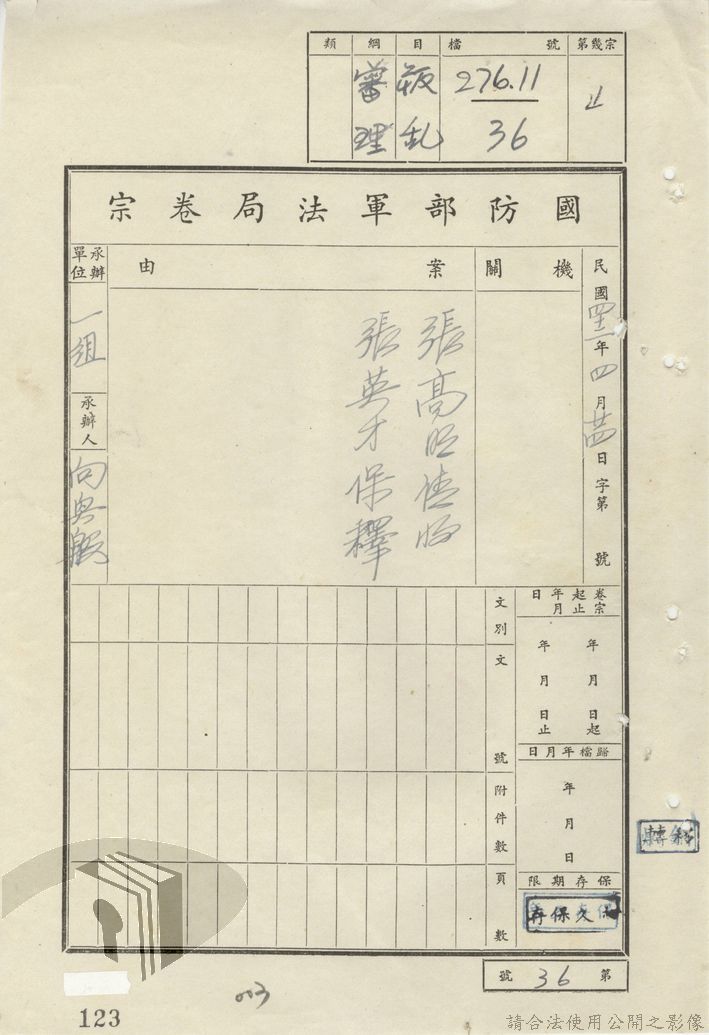 類 綱 目 檔號 第幾宗
審理 叛乱 276.11
36
國防部軍法局卷宗
民國 年四月 日 字第 號
機關
案由
張高 
張英才保釋
承辦單位
一組
承辦人
向興殷
卷宗起止年月日
年 月 日起
年 月 日止
歸檔年月日
年 月 日
保存期限
久保存
文別
文號
附件數
頁數
轉移
第 36 號
003
123
請合法使用公開之影像